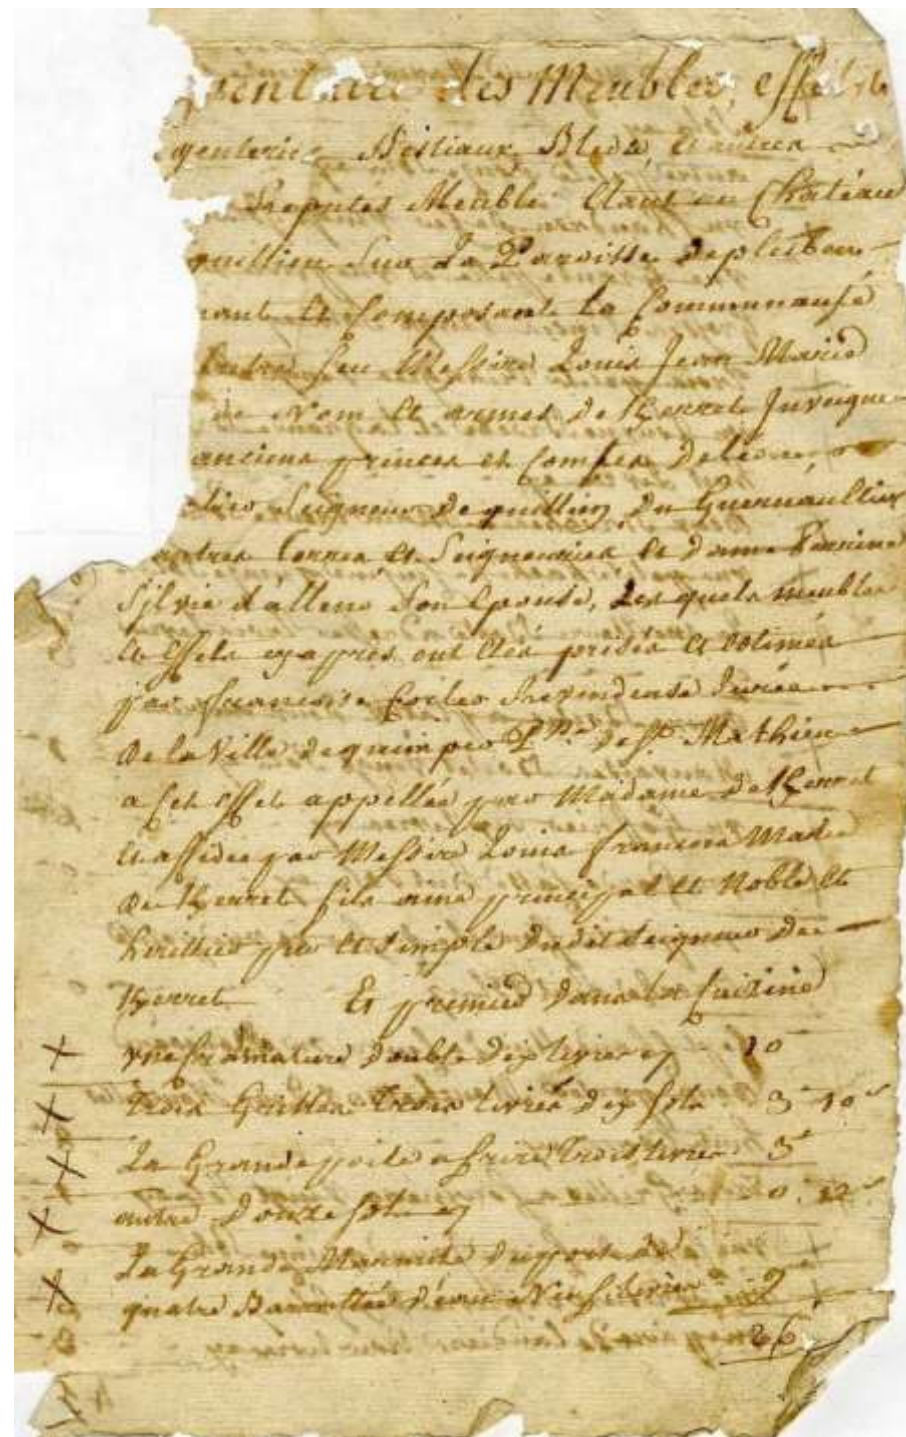 des Meubles, effets
Bestiaux, Bleds, et autres
Reputés Meuble Etant au Château
quillien Sur La Paroisse de pleiben
et Composant La Communauté
Entre feu Messire Louis Jean Marie
de Nom et armes de Kerret Juveigne
anciens princes et Comtes de Léon
Seigneur de quillien, du
autres Terres et Seigneuries et dame Perrine
Sylvie d'alleno Son Epouse, Les quels meubles
et Effets cy apres ont étés prisés et Estimés
par francoise Revendeuse Jurée
de la Ville de quimper P.sse de St. Mathieu
a Cet Effet appellée par Madame de Kerret
et assidee par Messire Louis francois Marie
de Kerret fils ainé principal et Noble et
heritier pur et Simple dudit Seigneur de
Kerret Et premier dans la Cuisine
double dix livres cy 10
Trois Grilles Trois livres dix Sols 3 10 s
La Grande poile a frire Trois livres 3
autre Douze Sols cy 0 12 s
La Grande Marmite du port de
quatre d'eau Neuf livres 9
26